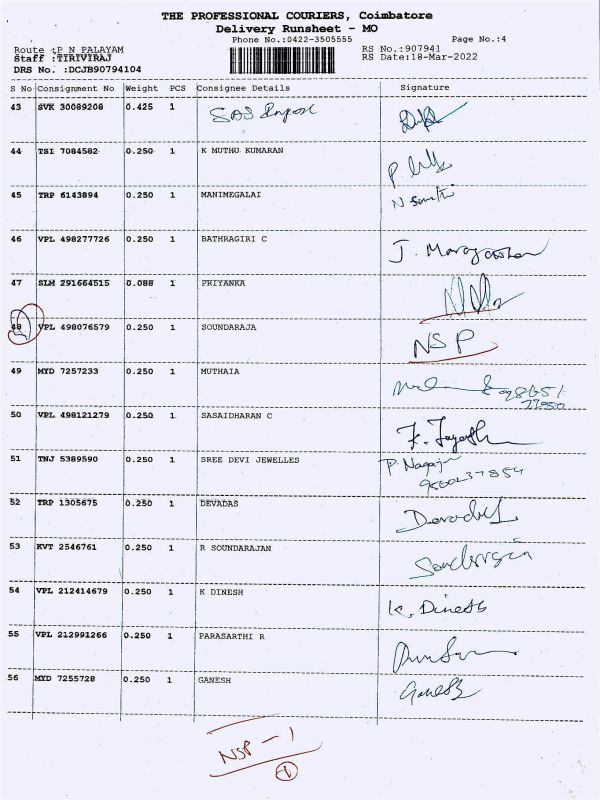 THE PROFESSIONAL COURIERS, Coimbatore
Delivery Runsheet - MO
Phone No.:0422-3505555 Page No.:4
Route :P N PALAYAM RS No.:907941
Staff :TIRIVIRAJ RS Date:18-Mar-2022
DRS No. :DCJB90794104
S No Consignment No Weight PCS Consignee Details Signature
43 SVK 30089208 0.425 1 SAS
44 TSI 7084582 0.250 1 K MUTHU KUMARAN
45 TRP 6143894 0.250 1 MANIMEGALAI
46 VPL 498277726 0.250 1 BATHRAGIRI C
47 SLM 291664515 0.088 1 PRIYANKA
48 VPL 498076579 0.250 1 SOUNDARAJA NSP
49 MYD 7257233 0.250 1 MUTHAIA
50 VPL 498121279 0.250 1 SASAIDHARAN C
51 TNJ 5389590 0.250 1 SREE DEVI JEWELLES
52 TRP 1305675 0.250 1 DEVADAS
53 KVT 2546761 0.250 1 R SOUNDARAJAN
54 VPL 212414679 0.250 1 K DINESH K. Dinesh
55 VPL 212991266 0.250 1 PARASARTHI R
56 MYD 7255728 0.250 1 GANESH Ganesh
NSP - 1